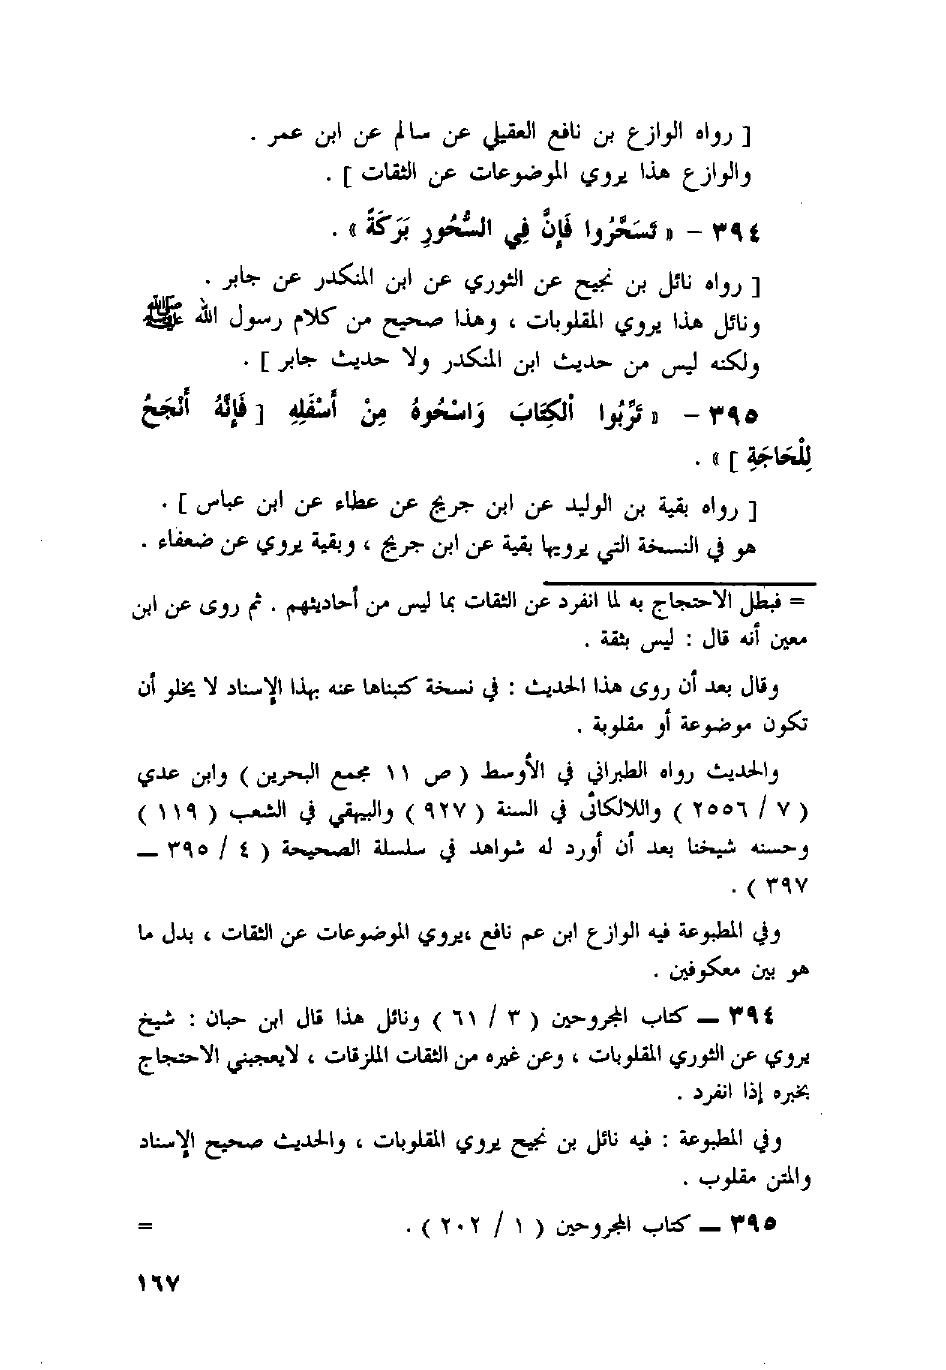 [ رواه الوازع بن نافع العقيلي عن سالم عن ابن عمر .
والوازع هذا يروي الموضوعات عن الثقات ] .
٣٩٤ – « تَسَحَّرُوا فَإِنَّ فِي السُّحُورِ بَرَكَةً » .
[ رواه نائل بن نجيح عن الثوري عن ابن المنكدر عن جابر .
ونائل هذا يروي المقلوبات ، وهذا صحيح من كلام رسول الله ﷺ
ولكنه ليس من حديث ابن المنكدر ولا حديث جابر ] .
٣٩٥ – « تَرِّبُوا ٱلْكِتَابَ وَاسْحُوهُ مِنْ أَسْفَلِهِ [ فَإِنَّهُ أَنْجَحُ
لِلْحَاجَةِ ] » .
[ رواه بقية بن الوليد عن ابن جريج عن عطاء عن ابن عباس ] .
هو في النسخة التي يرويها بقية عن ابن جريج ، وبقية يروي عن ضعفاء .
= فبطل الاحتجاج به لما انفرد عن الثقات بما ليس من أحاديثهم . ثم روى عن ابن
معين أنه قال : ليس بثقة .
وقال بعد أن روى هذا الحديث : في نسخة كتبناها عنه بهذا الإسناد لا يخلو أن
تكون موضوعة أو مقلوبة .
والحديث رواه الطبراني في الأوسط ( ص ١١ مجمع البحرين ) وابن عدي
( ٧ / ٢٥٥٦ ) واللالكائى في السنة ( ٩٢٧ ) والبيهقي في الشعب ( ١١٩ )
وحسنه شيخنا بعد أن أورد له شواهد في سلسلة الصحيحة ( ٤ / ٣٩٥ ــ
٣٩٧ ) .
وفي المطبوعة فيه الوازع ابن عم نافع ،يروي الموضوعات عن الثقات ، بدل ما
هو بين معكوفين .
٣٩٤ ــ كتاب المجروحين ( ٣ / ٦١ ) ونائل هذا قال ابن حبان : شيخ
يروي عن الثوري المقلوبات ، وعن غيره من الثقات الملزقات ، لايعجبني الاحتجاج
بخبره إذا انفرد .
وفي المطبوعة : فيه نائل بن نجيح يروي المقلوبات ، والحديث صحيح الإسناد
والمتن مقلوب .
٣٩٥ ــ كتاب المجروحين ( ١ / ٢٠٢ ) . =
١٦٧